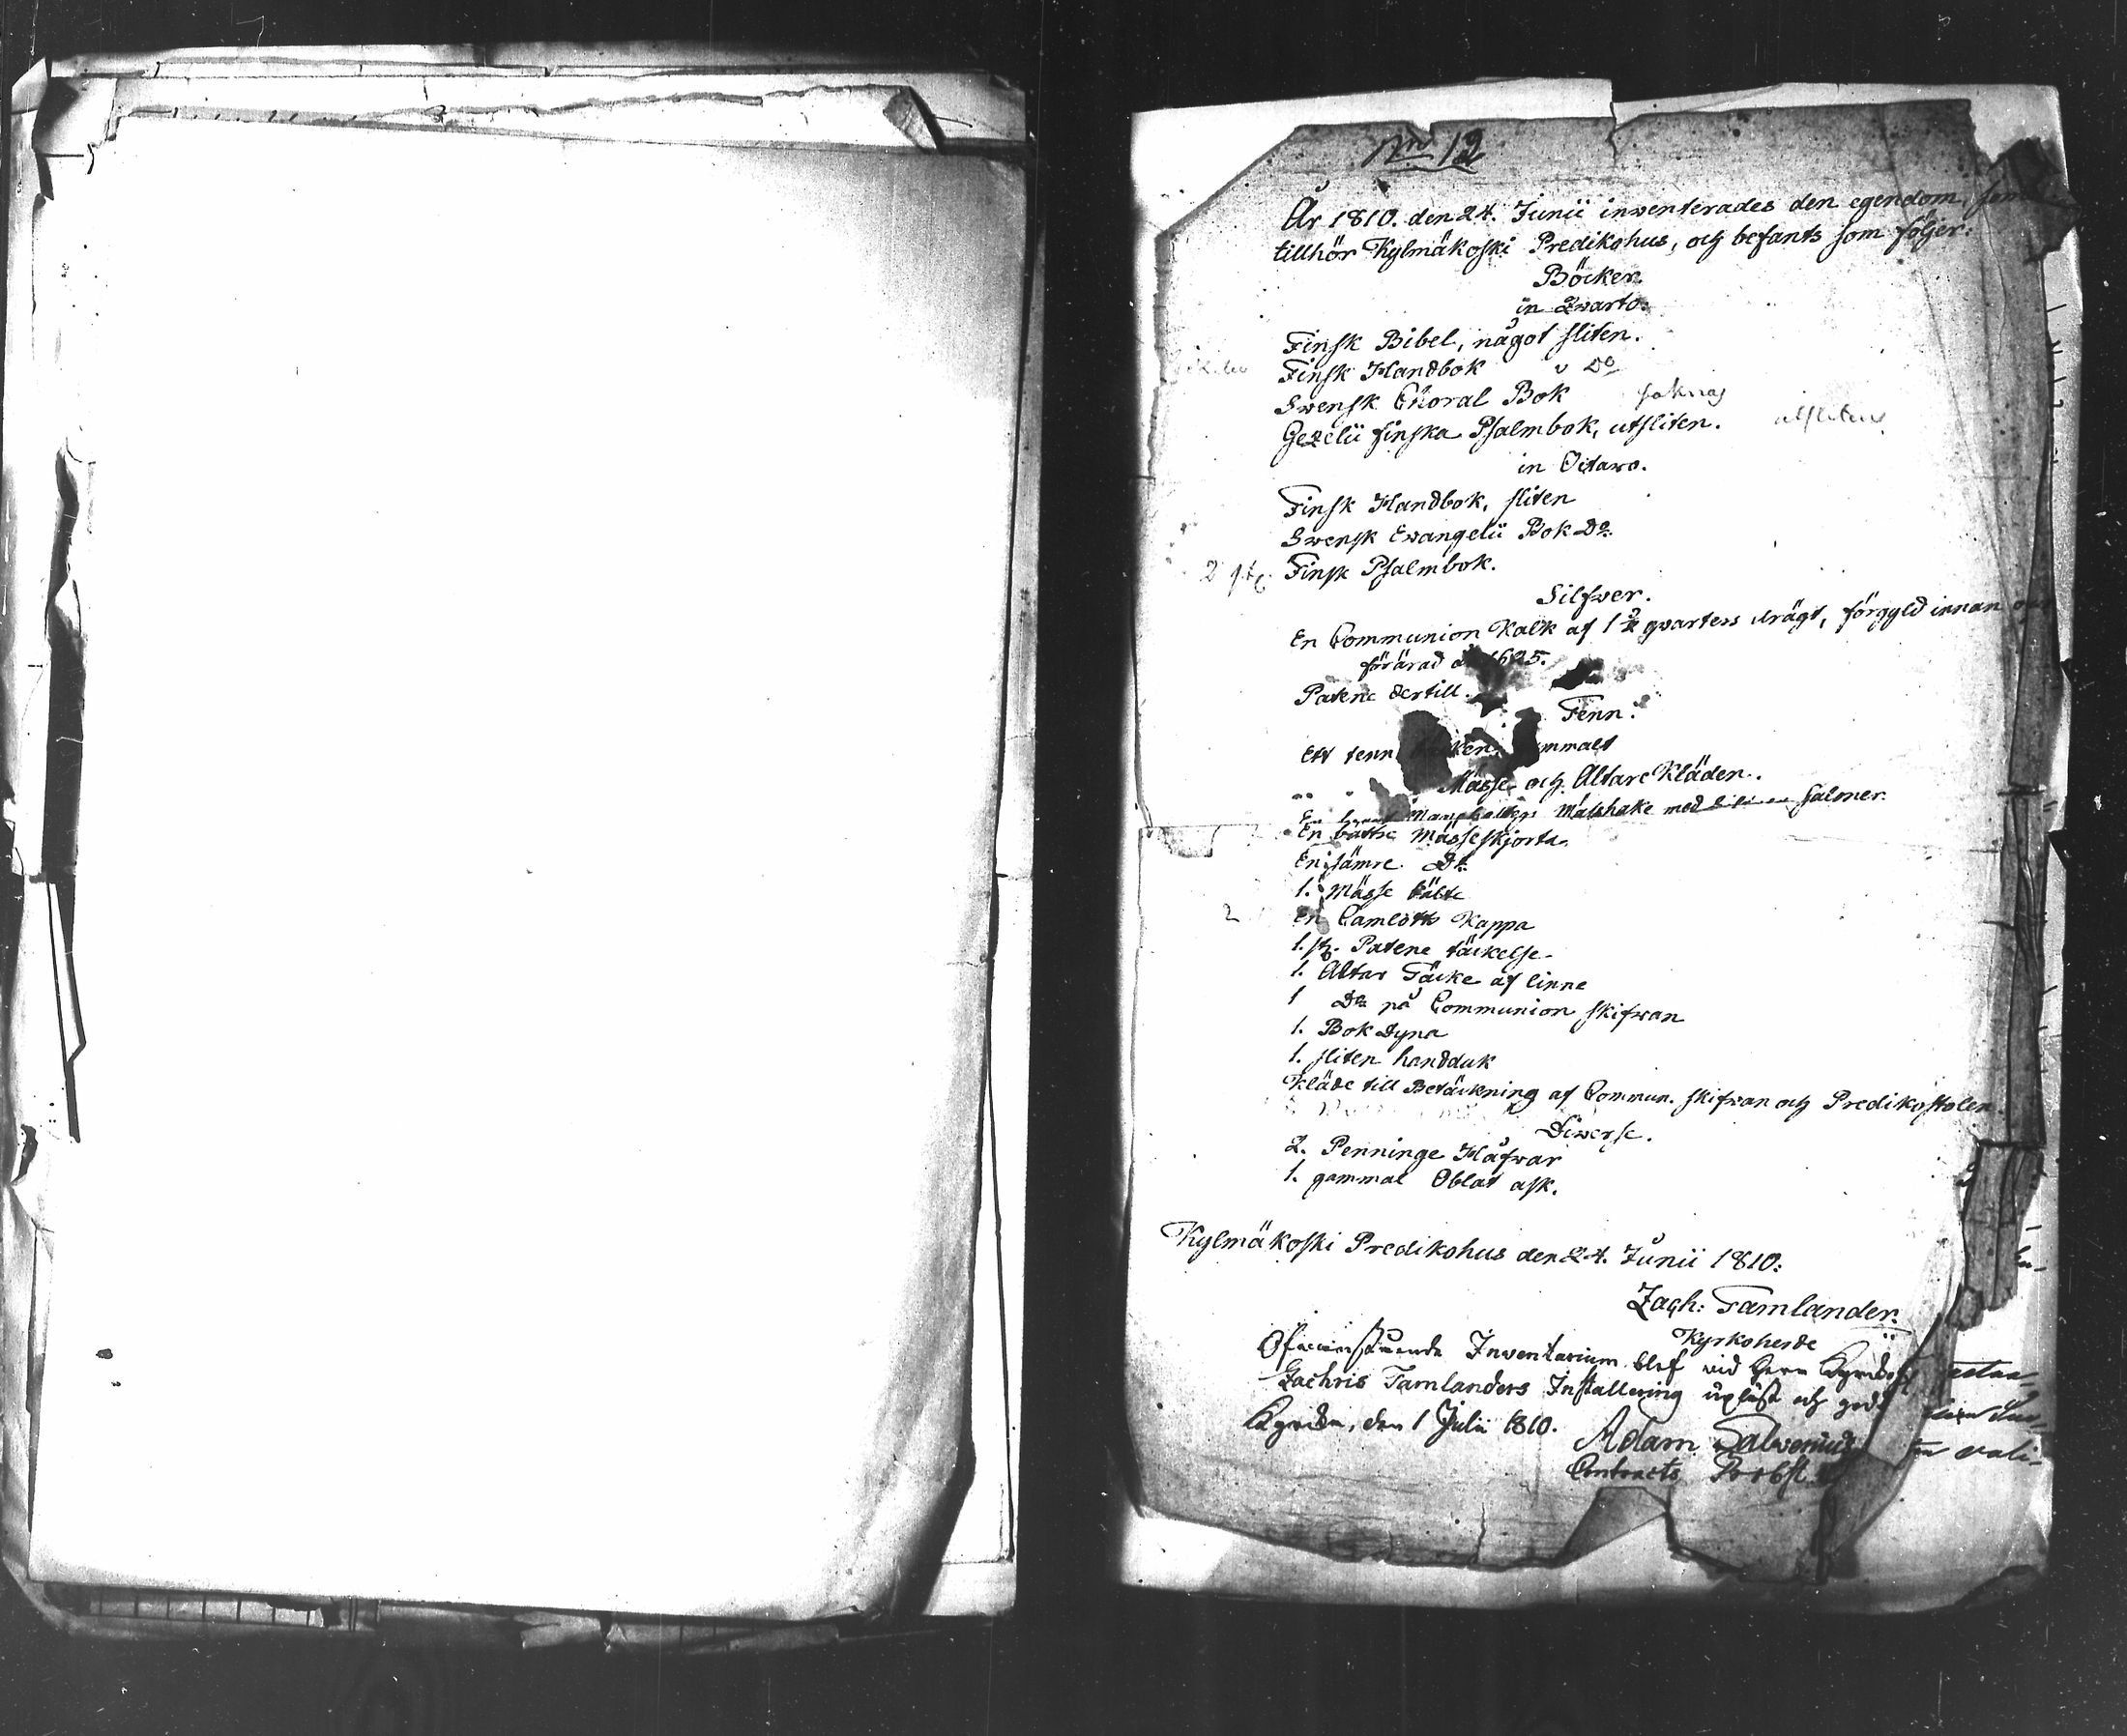 N:o 12
År 1810. den 24. Junii inwenterades den egendom, som
tillhör Kylmäkoski Predikohus, och befants som följer.
Böcker.
in Qwarto.
Finsk Bibel, något sliten.
Finsk Handbok " Do
Swensk Choral Bok saknas
Gezelii finska Psalmbok, utsliten. utsliten
in Octavo.
Finsk Handbok, sliten
Swensk Ewangelii Bok Do.
2 st. Finsk Psalmbok.
Silfwer.
En Communion Kalk af 1 qwarters drägt, förgyld innan
förärad år 1625.
Patene dertill.
Tenn.
Ett tenn
Mässe och Altare Kläden.
En Mässhake med galoner.
En bättre Mässeskjorta.
En sämre Do
1. Mässe bälte
2 En Camlotts Kappa
1. st. Patene täckelse.
1. Altar Täcke af linne
1 Do på Communion skifwan
1. Bok Dyna
1. sliten handduk
Kläde till Betäckning af Commun. skifwan och Predikostolen.
Diverse.
2. Penninge Håfwar
1. gammal Oblat ask.
Kylmäkoski Predikohus den 24. Junii 1810.
Zach: Tamlander.
Kyrkoherde
Ofwanstående Inventarium blef vid Herr Kyrkoh
Zachris Tamlanders Installering upläst och god
den 1 Julii 1810.
Adam Salvenius
Contracts Probst